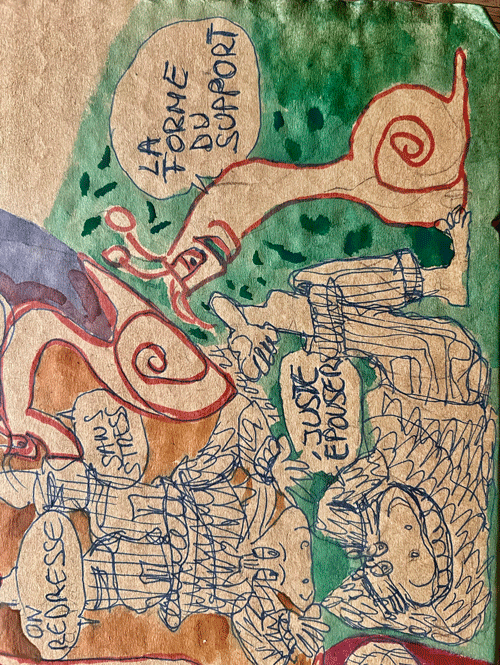 ON
REDRESSE
SANS
STRESS
JUSTE
ÉPOUSER
LA
FORME
DU
SUPPORT